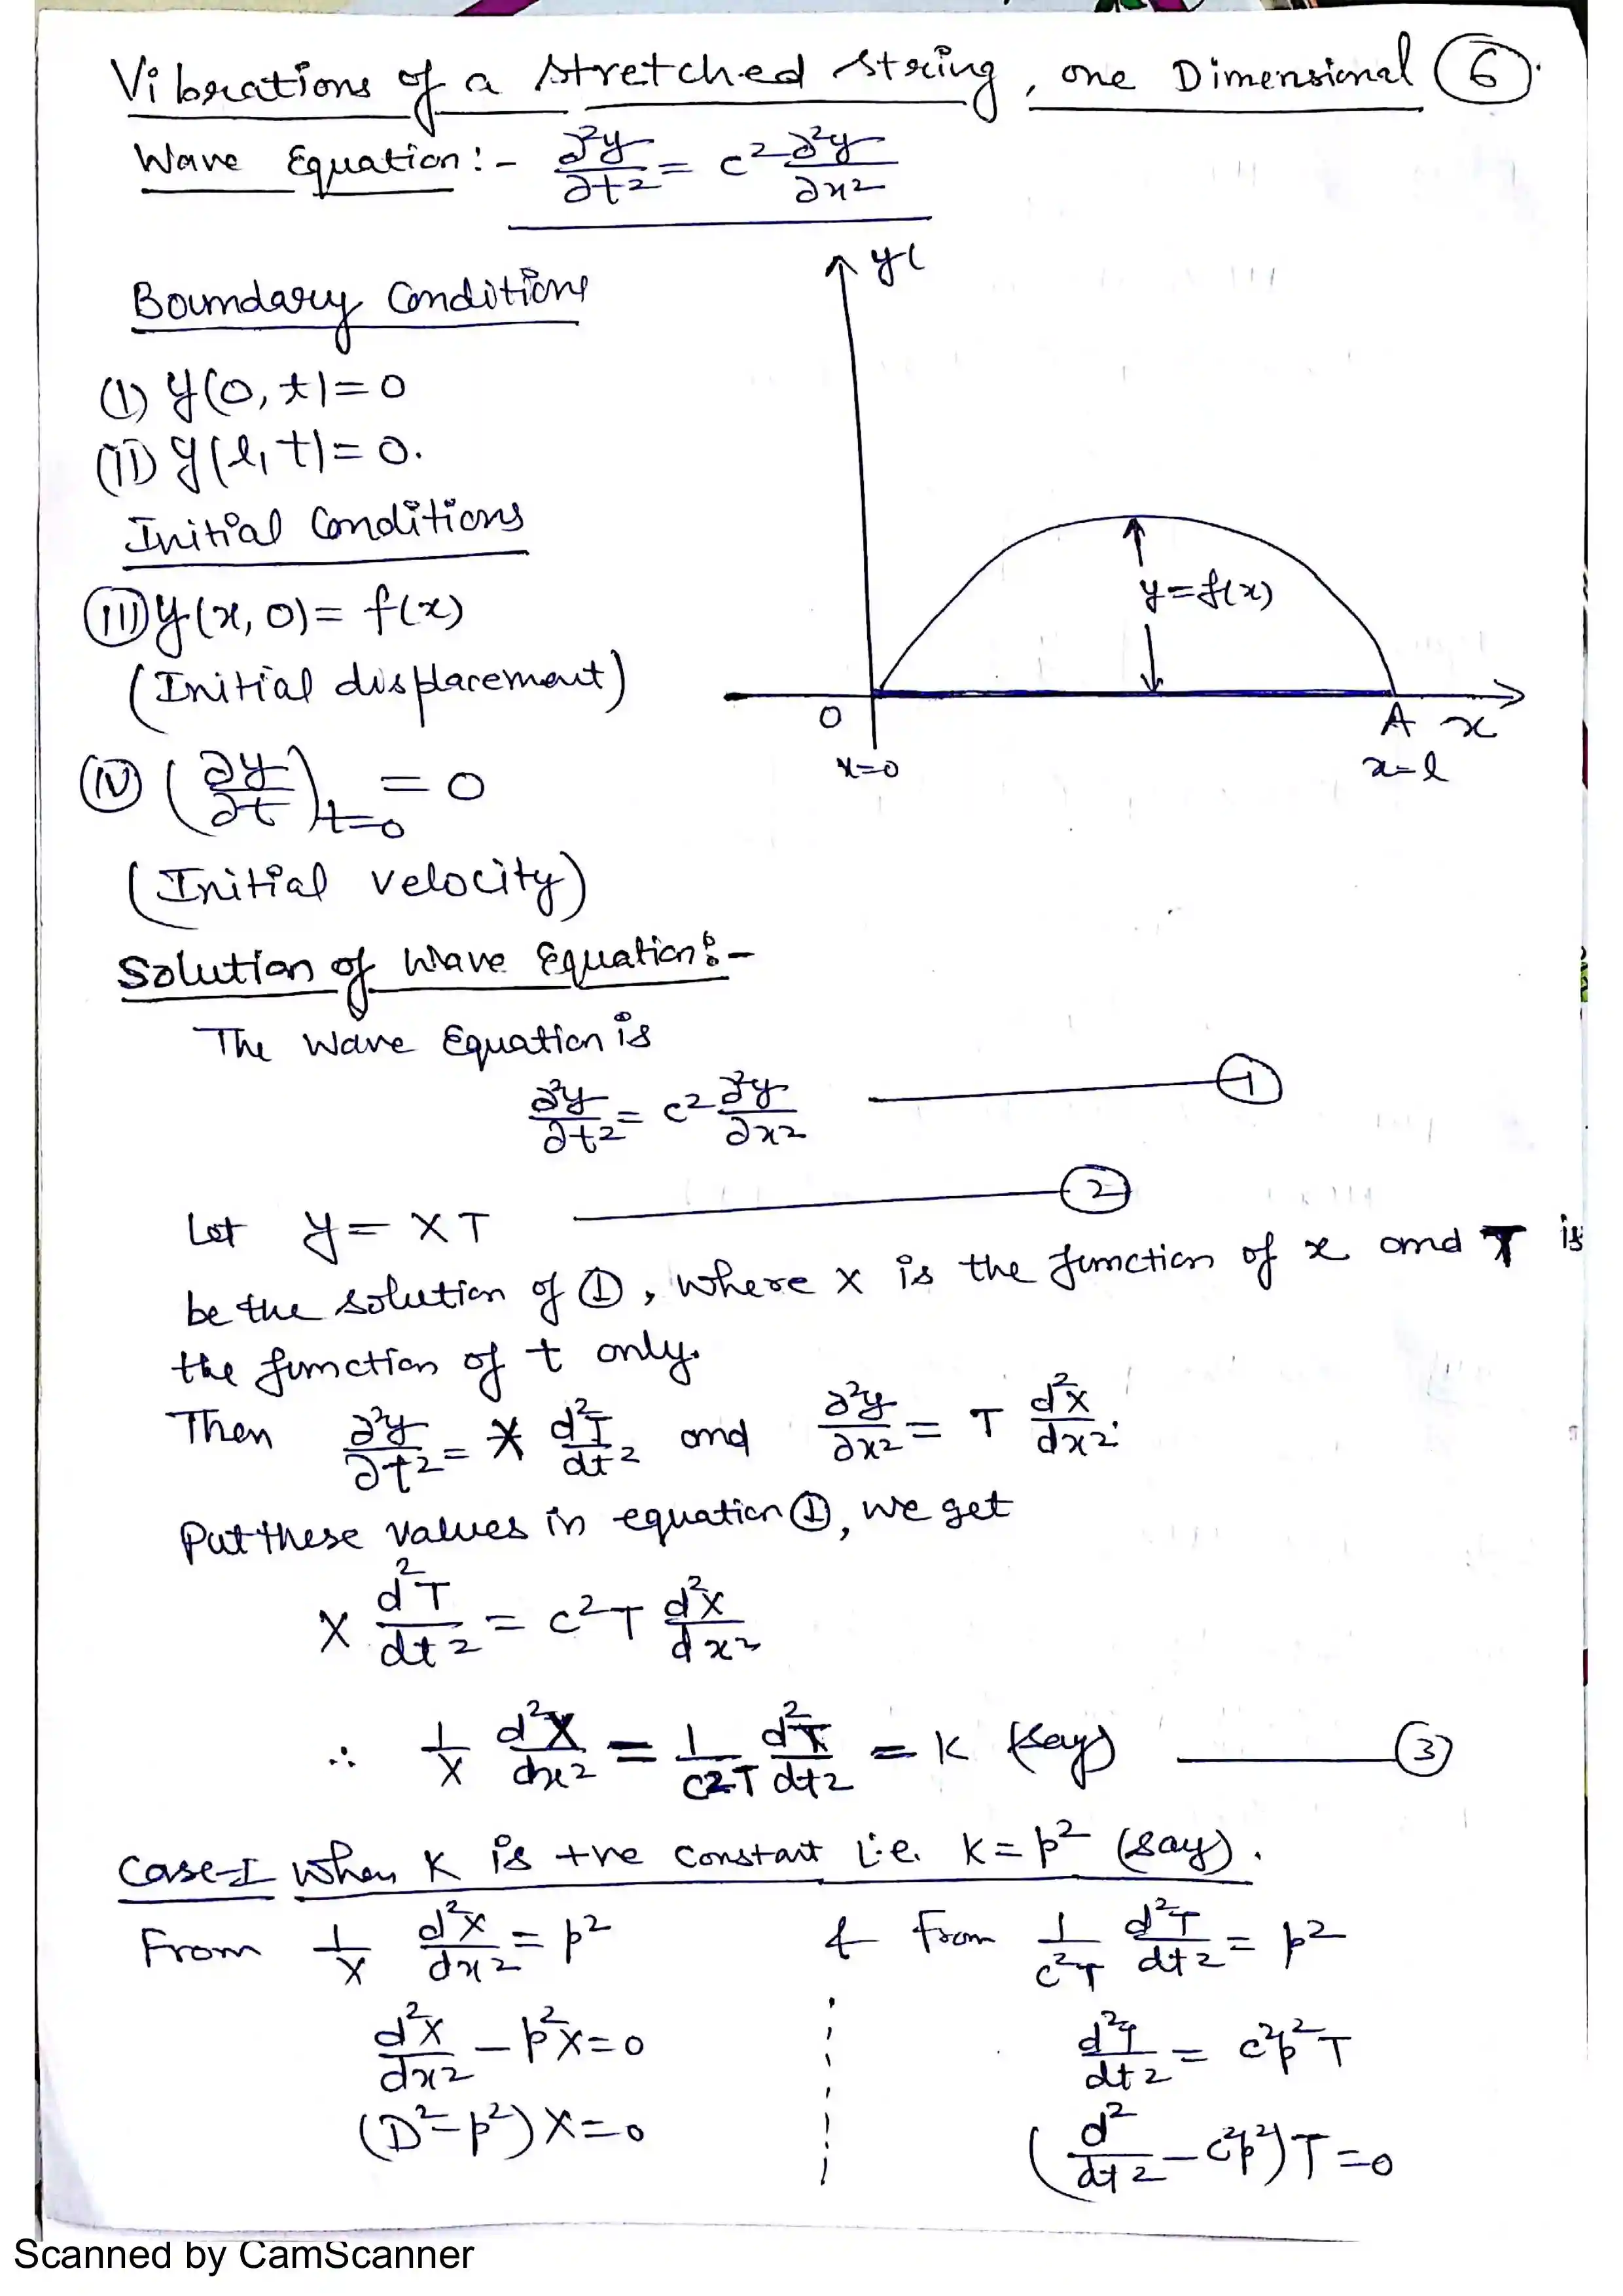 Vibrations of a stretched string, one Dimensional ⑥
Wave Equation:- ∂²y/∂t² = c² ∂²y/∂x²
Boundary Conditions
(I) y(0, t)=0
(II) y(l, t)=0.
Initial Conditions
(III) y(x, 0)= f(x)
(Initial displacement)
(IV) (∂y/∂t)t=0 = 0
(Initial velocity)
y(
y=f(x)
O A x
x=0 x=l
Solution of Wave Equation:-
The Wave Equation is
∂²y/∂t² = c² ∂²y/∂x² ——— ①
Let y = XT ——— ②
be the solution of ①, where X is the function of x and T is
the function of t only.
Then ∂²y/∂t² = X d²T/dt² and ∂²y/∂x² = T d²X/dx².
Put these values in equation ①, we get
X d²T/dt² = c²T d²X/dx²
∴ 1/X d²X/dx² = 1/c²T d²T/dt² = K (say) ——— ③
Case-I When K is +ve constant i.e. K = p² (say).
From 1/X d²X/dx² = p² & From 1/c²T d²T/dt² = p²
d²X/dx² - p²X=0 d²T/dt² = c²p²T
(D²-p²)X=0 (d²/dt² - c²p²)T=0
Scanned by CamScanner